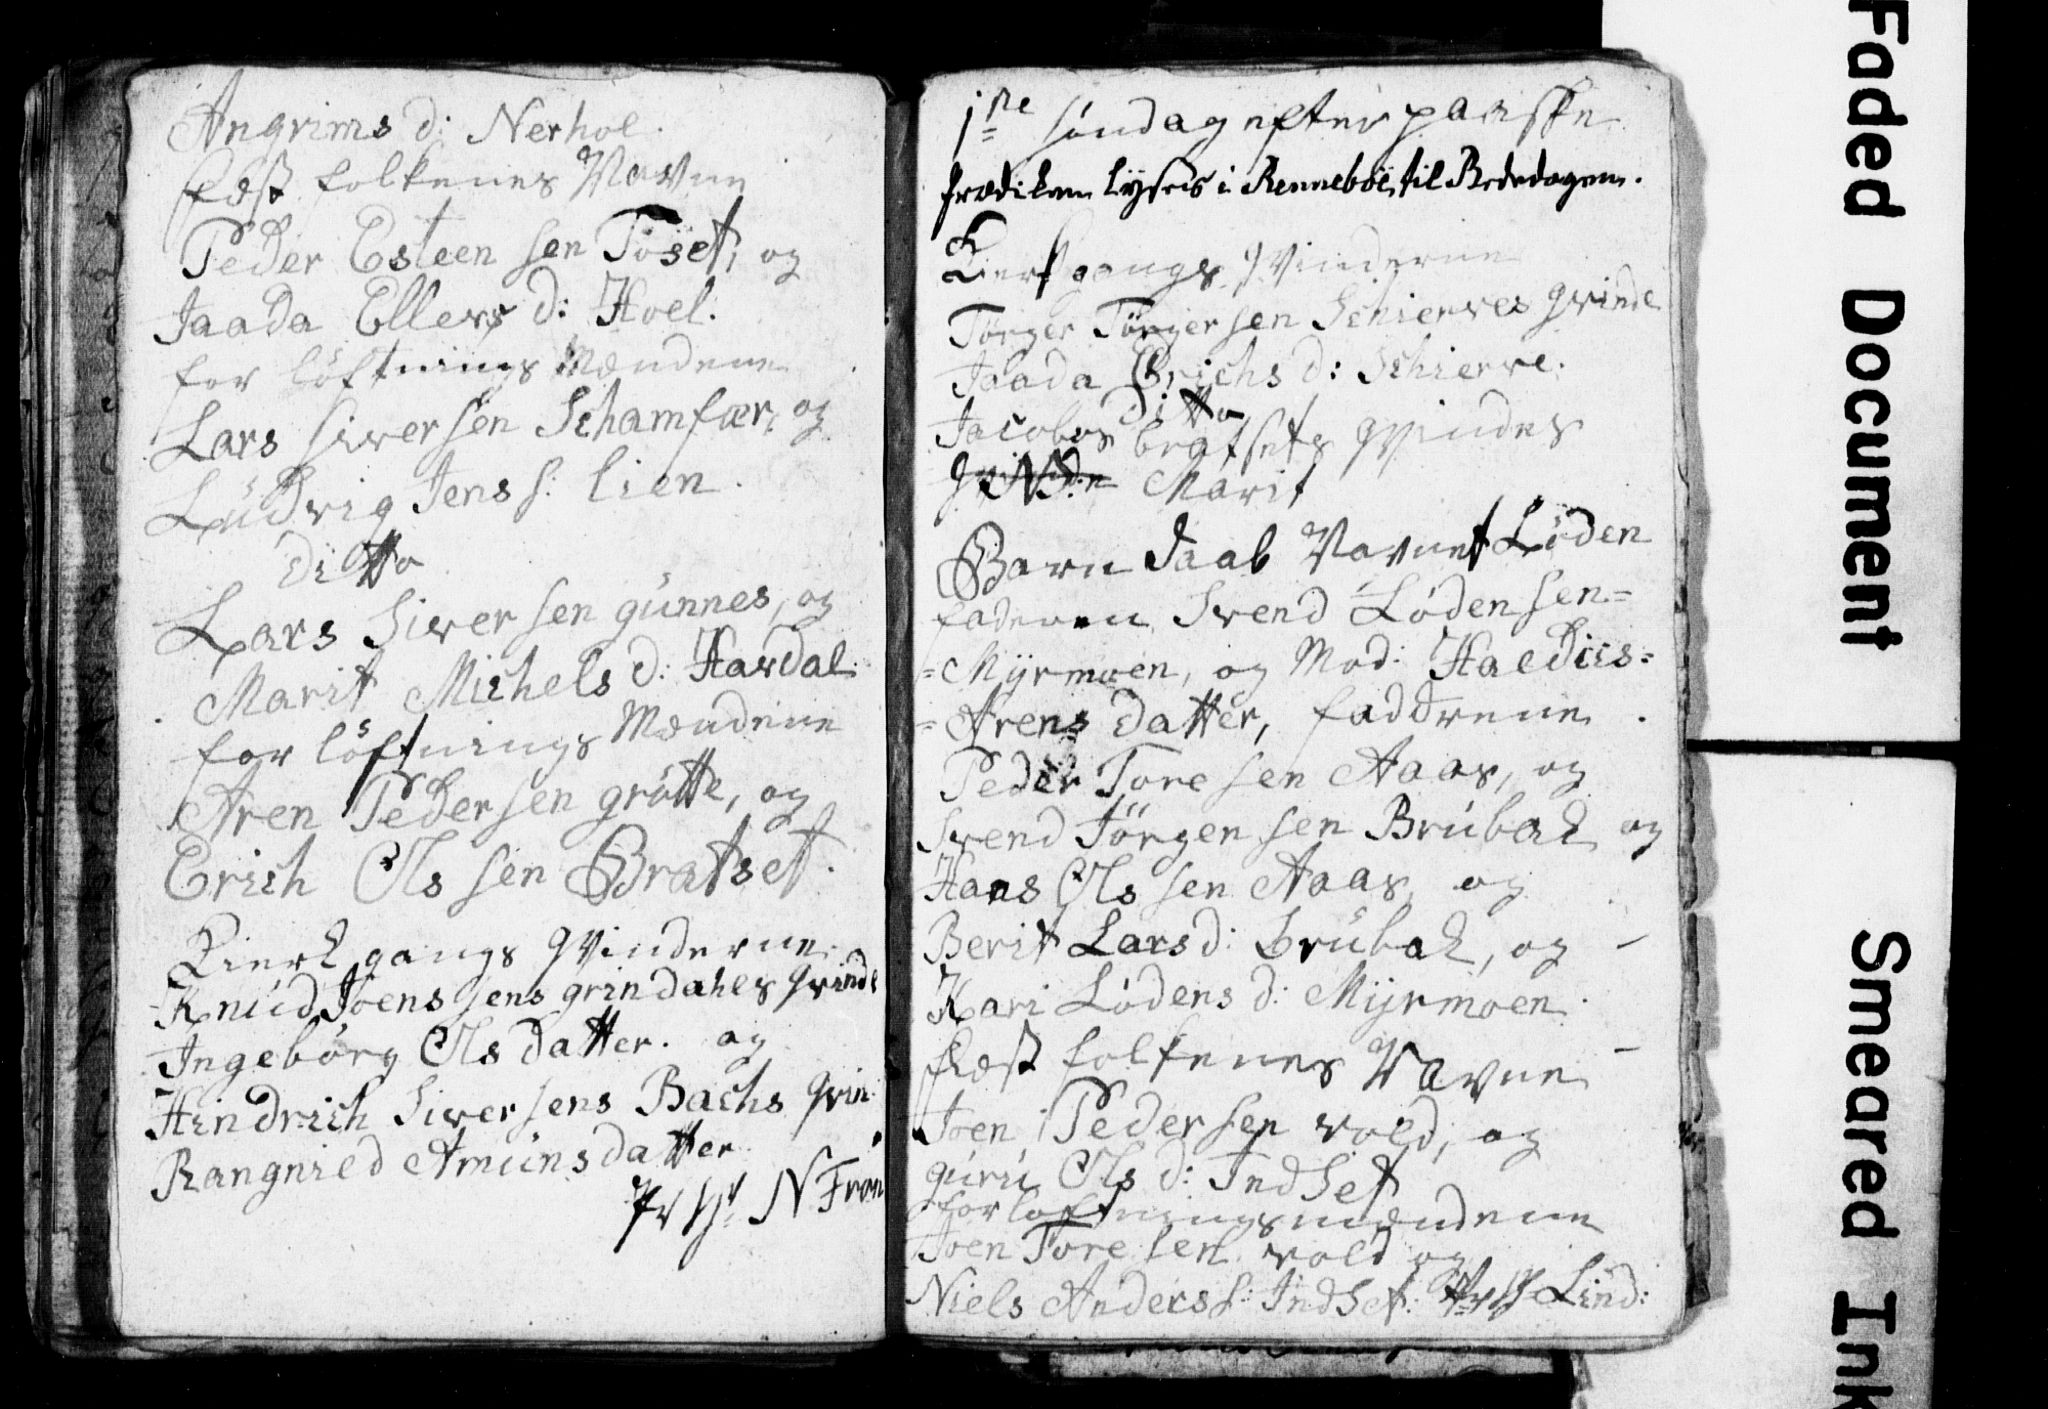 Angrims d: Nerhoel.
fæst folkenes Navne
Peder Esteen sen Toset, og
Jaada Ellevs d: Hoel.
for löftnings Mændene
Lars Siversen Schamfær, og
Ludvig Jens s: lien.
Ditto
Lars Siver sen gunnes, og
Marit Michels d: Havdal.
for löftnings Mændene
Aren Peder sen grøtte, og
Erich Ols sen Bratset.
Kierk gangs qvinderne
Knud Joens sens grindahls qvinde
Ingebörg Ols datter. og
Hindrich Siver sens Bachs qvin:
Rangnild Amuns datter
N Fron
1ste söndag efter paaske
Prædiken lyses i Rennebøe til Bededagen.
Kierk gangs qvinderne
Törger Törger sen Schierves qvinde
Jaada Erichs d: Schierve.
Ditto
Jacobs bratsets qvindes
Marit
Barn Daab Navnet Löden
faderen Svend Løden sen=
=Myrmoen, og Mod: Haldis=
=Arens datter, faddrene
Peder Tore sen Aaas, og
Svend Törgen sen Brubak og
Hans Ols sen Aaas, og
Berit Lars d: Brubak, og
Kari Lödens d: Myrmoen.
fæst folkenes Navne
Joen Peder sen vold, og
guru Ols d: Indset
for löftningsmændene
Joen Tore sen vold og
Niels Anders s: Indset. Lind:
Faded Document
Smeared Ink